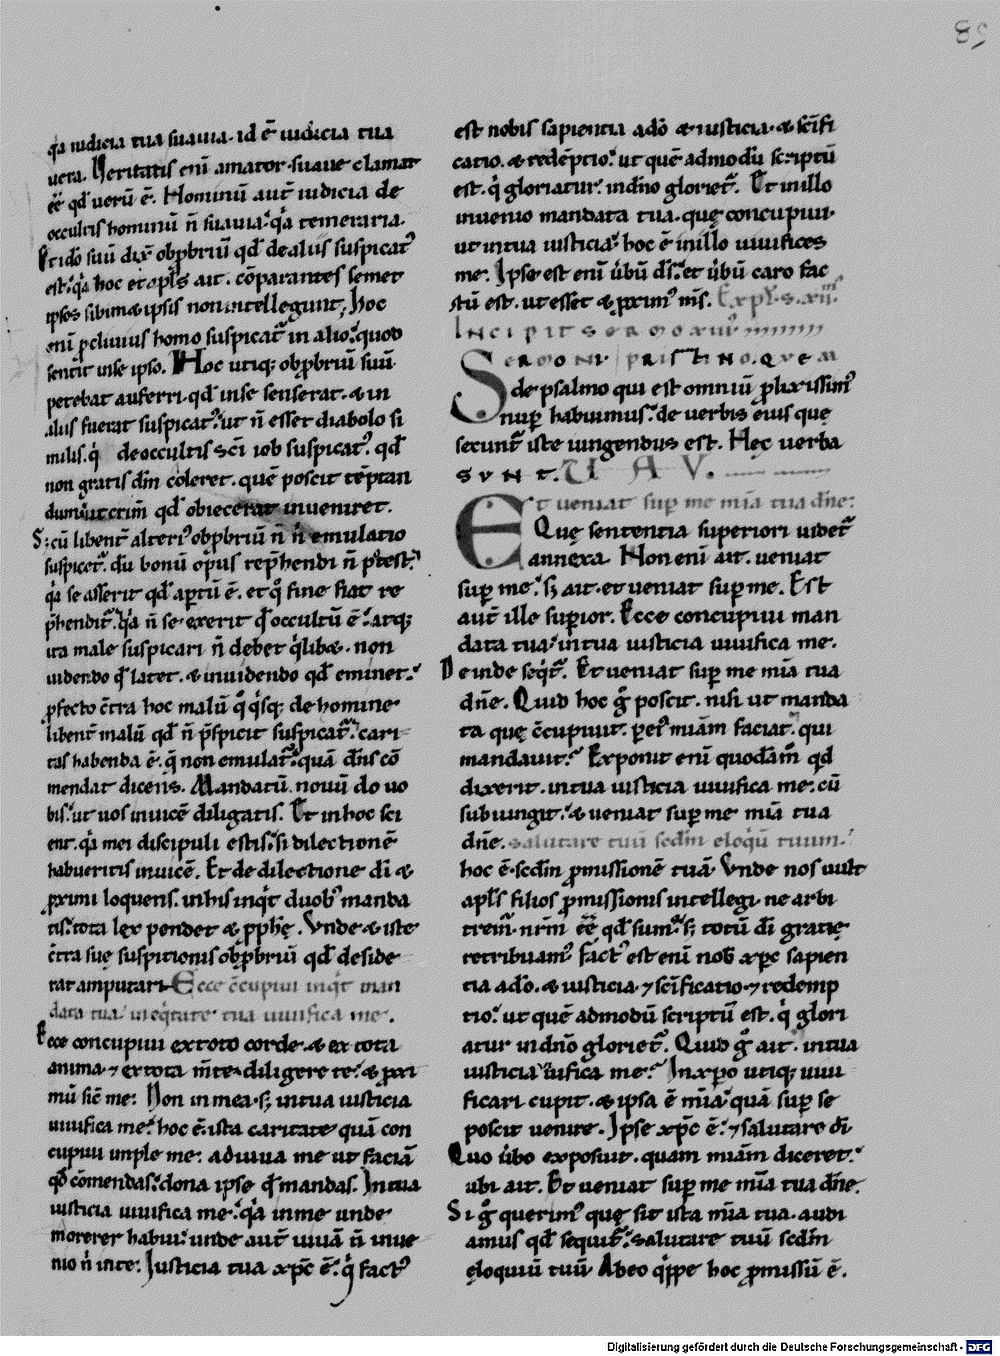 85
q̇a iudicia tua suauia. id ē iudicia tua
uera. Veritatis eni amator. suaue clamat
eē qđ uerū ē. Hominū aut̄ iudicia de
occultis hominū ñ suauia. q̇a temeraria.
Ideo suū dix̄ obp̄briū qđ de aliis suspicat᷒
est. q̇a hoc et apl̄s ait. cōparantes semet
ipsos sibimet ipsis non intellegunt; Hoc
enī p̄cliuius homo suspicat᷒ in alio. quod
sentit in se ipso. Hoc utiq; obp̄briū suū
petebat auferri. qđ in se senserat. & in
aliis fuerat suspicat᷒. ut ñ esset diabolo si
milis. q̇ de occultis sc̄i iob suspicat᷒. qđ
non gratis dn̄m coleret. quē poscit tēptan
dum ut crim̄ qđ obiecerat inueniret.
S; cū libent̄ alteri᷒ obp̄briū ñ ñ emulatio
suspicet᷒. dū bonū op᷒ us rep̄hendi ñ potest.
q̇a se asserit qđ aptū ē. et q̊ fine fiat re
p̄hendit᷒. q̇a ñ se exerit qđ occultū ē. atq;
ita male suspicari ñ debet q̇libet. non
uidendo qđ latet. & inuidendo qđ eminet.
p̄fecto c̄tra hoc malū q̊ q̇sq; de homine
libent̄ malū qđ ñ p̄spicit suspicat᷒. cari
tas habenda ē. q̇ non emulat᷒. quā dn̄s cō
mendat dicens. Mandatū nouū do uo
bis. ut uos inuicē diligatis. Et in hoc sci
ent. q̇a mei discipuli estis. si dilectionē
habueritis inuicē. Et de dilectione dī &
p̄ximi loquens. in his inq̇t duob᷒ manda
tis. tota lex pendet & p̄phę. Vnde & iste
c̄tra suę suspitionis obp̄briū qđ deside
rat amputari. Ecce c̄cupiui inq̇t man
data tua. in eq̇tate tua uiuifica me.
Ecce concupiui ex toto corde. & ex tota
anima. ⁊ ex tota m̄te. diligere te. & p̄xi
mū sic̄ me. Non in mea. s; in tua iusticia
uiuifica me. hoc ē. ista caritate quā con
cupiui imple me. adiuua me ut faciā
qđ cōmendas. dona ipse qđ mandas. In tua
iusticia uiuifica me. q̇a in me unde
morerer habui. unde aut̄ uiuā ñ inue
nio ñ in te. Justicia tua xp̄c ē. q̇ fact᷒
est nobis sapientia a dō & iusticia. & sc̄ifi
catio. & redēptio. ut quē admodū scriptū
est. q̇ gloriatur. in dn̄o gloriet᷒. Et in illo
inuenio mandata tua. que concupiui.
ut in tua iusticia. hoc ē in illo uiuifices
me. Ipse est enī u̇bū dī. et u̇bū caro fac
tū est. ut esset & p̄xim᷒ m̄s. Expl̄. s. xii.
Incipit sermo xiii
Sermoni pristino. quem
de psalmo qui est omniū p̄lixissim᷒
nup̄ habuimus. de uerbis eius quę
secunt᷒ iste iungendus est. Hęc uerba
SVNT. UAV.
Et ueniat sup̄ me mīa tua dn̄e.
Quę sententia superiori uidet᷒
annexa. Non enī ait. ueniat
sup̄ me. s; ait. et ueniat sup̄ me. Est
aut̄ ille superior. Ecce concupiui man
data tua. in tua iusticia uiuifica me.
Deinde seq̇t᷒. Et ueniat sup̄ me mīa tua
dn̄e. Quid hoc g̊ poscit. nisi ut manda
ta quę c̄cupiuit. p̄ ei᷒ mīam faciat. qui
mandauit. Exponit enī quodam̄ qđ
dixerit. in tua iusticia uiuifica me. cū
subiungit. & ueniat sup̄ me mīa tua
dn̄e. salutare tuū scđm eloq̇ū tuum.
hoc ē. scđm p̄missionē tuā. Vnde nos uult
apl̄s filios p̄missionis intellegi. ne arbi
trem᷒. nr̄m eē qđ sum᷒. s; totū dī gratię
retribuam᷒. Fact᷒ est enī nob̄ xp̄c sapien
tia a dō. & iusticia. ⁊ sc̄ificatio. ⁊ redemp
tio. ut quē admodū scriptū est. q̇ glori
atur in dn̄o gloriet᷒. Quid g̊ ait. in tua
iusticia uiuifica me. In xp̄o utiq; uiui
ficari cupit. & ipsa ē mīa quā sup̄ se
poscit uenire. Ipse xp̄c ē. ⁊ salutare dī.
Quo u̇bo exposuit. quam mīam diceret.
ubi ait. Et ueniat sup̄ me mīa tua dn̄e.
Si g̊ querim᷒ quę sit ista mīa tua. audi
amus qđ sequit᷒. salutare tuū scđm
eloquiū tuū. Abeo q̇ppe hoc p̄missū ē.
Digitalisierung gefördert durch die Deutsche Forschungsgemeinschaft - DFG